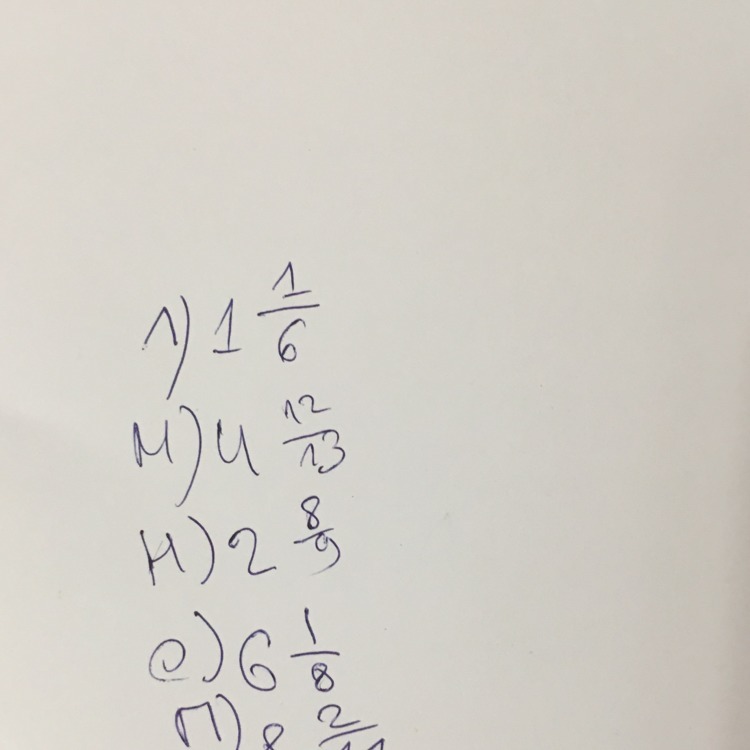 л) 1 1/6
м) 4 12/13
н) 2 8/9
о) 6 1/8
п) 8 2/11